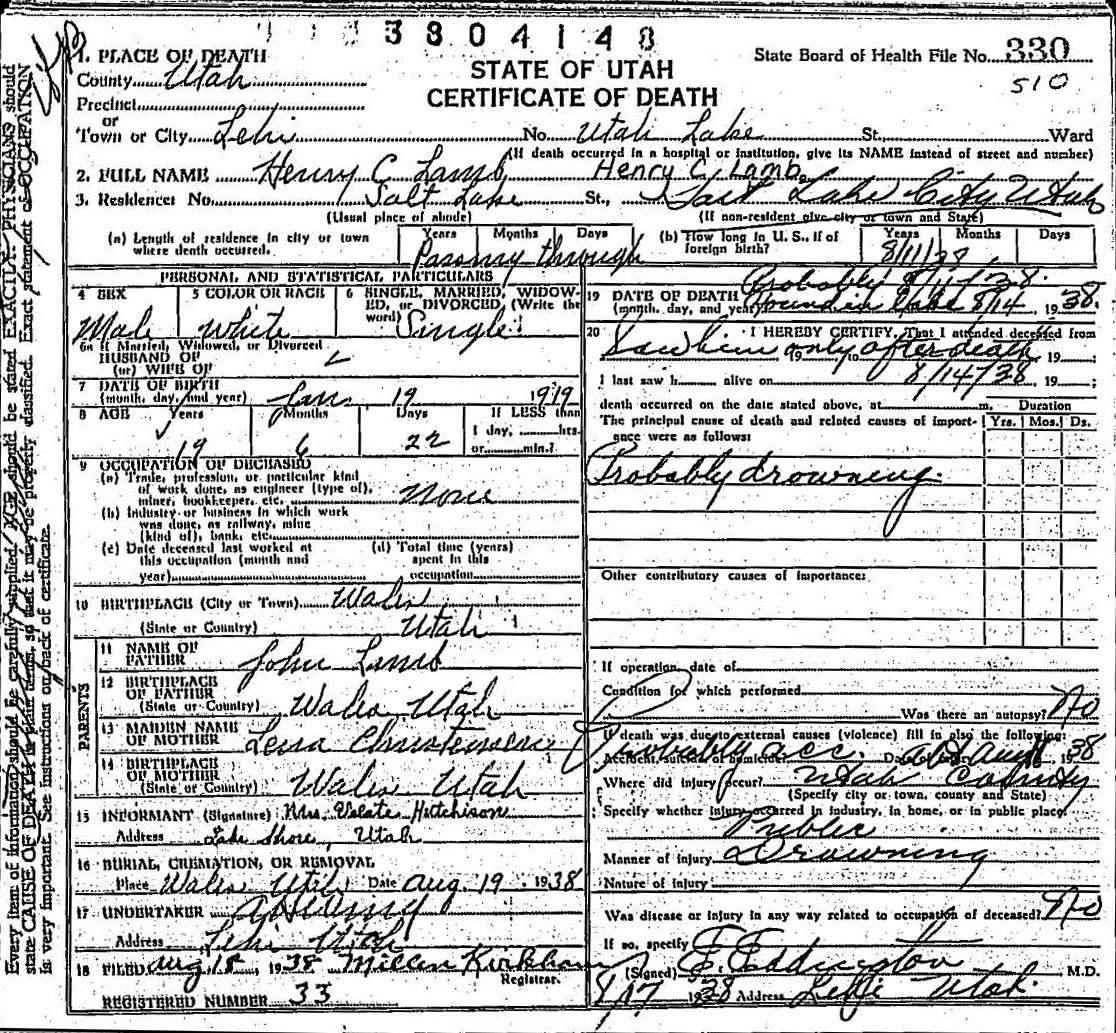 3804148
1. PLACE OF DEATH
County Utah
Precinct
or
Town or City Lehi No. Utah Lake St. Ward
STATE OF UTAH
CERTIFICATE OF DEATH
State Board of Health File No. 330
510
(If death occurred in a hospital or institution, give its NAME instead of street and number)
2. FULL NAME Henry C Lamb Henry C. Lamb
3. Residence: No. Salt Lake St., Salt Lake City Utah
(Usual place of abode) (If non-resident give city or town and State)
(a) Length of residence in city or town where death occurred. Years Months Days
through
(b) How long in U. S., if of foreign birth? Years Months Days
8/11/38
PERSONAL AND STATISTICAL PARTICULARS
4 SEX Male
5 COLOR OR RACE White
6 SINGLE, MARRIED, WIDOWED, or DIVORCED, (Write the word) Single
6a If Married, Widowed, or Divorced
HUSBAND OF
(or) WIFE OF
7 DATE OF BIRTH
(month, day, and year) Jan 19 1919
8 AGE Years Months Days If LESS than
19 6 22 1 day, hrs.
or min.?
9 OCCUPATION OF DECEASED
(a) Trade, profession, or particular kind
of work done, as engineer (type of),
miner, bookkeeper, etc. None
(b) Industry or business in which work
was done, as railway, mine
(kind of), bank, etc.
(c) Date deceased last worked at
this occupation (month and
year)
(d) Total time (years)
spent in this
occupation
10 BIRTHPLACE (City or Town) Wales
(State or Country) Utah
PARENTS
11 NAME OF
FATHER John Lamb
12 BIRTHPLACE
OF FATHER
(State or Country) Wales Utah
13 MAIDEN NAME
OF MOTHER Lena Christensen
14 BIRTHPLACE
OF MOTHER
(State or Country) Wales Utah
15 INFORMANT (Signature) Mrs. Hutchison
Address Lake Shore, Utah
16 BURIAL, CREMATION, OR REMOVAL
Place Wales Utah Date Aug. 19 1938
17 UNDERTAKER
Address Lehi Utah
18 FILED Aug 18, 1938 Kirkham
Registrar.
REGISTERED NUMBER 33
19 DATE OF DEATH Probably 8/11/38.
(month, day, and year) Found in Lake 8/14 1938
20 I HEREBY CERTIFY, That I attended deceased from
Saw him only after death, 19 ;
I last saw h alive on 8/14/38, 19 ;
death occurred on the date stated above, at m. Duration
The principal cause of death and related causes of importance were as follows: Yrs. Mos. Ds.
Probably drowning.
Other contributory causes of importance:
If operation, date of
Condition for which performed
Was there an autopsy? No
If death was due to external causes (violence) fill in also the following:
Accident, suicide or homicide? Probably acc. Date of 1938
Where did injury occur? Utah County
(Specify city or town, county and State)
Specify whether injury occurred in industry, in home, or in public place.
Public
Manner of injury Drowning
Nature of injury
Was disease or injury in any way related to occupation of deceased? No
If so, specify
(Signed) E. Eddington M.D.
8/17 1938 Address Lehi Utah.
Every item of information should be carefully supplied. AGE should be stated EXACTLY. PHYSICIANS should
state CAUSE OF DEATH in plain terms, so that it may be properly classified. Exact statement of OCCUPATION
is very important. See instructions on back of certificate.